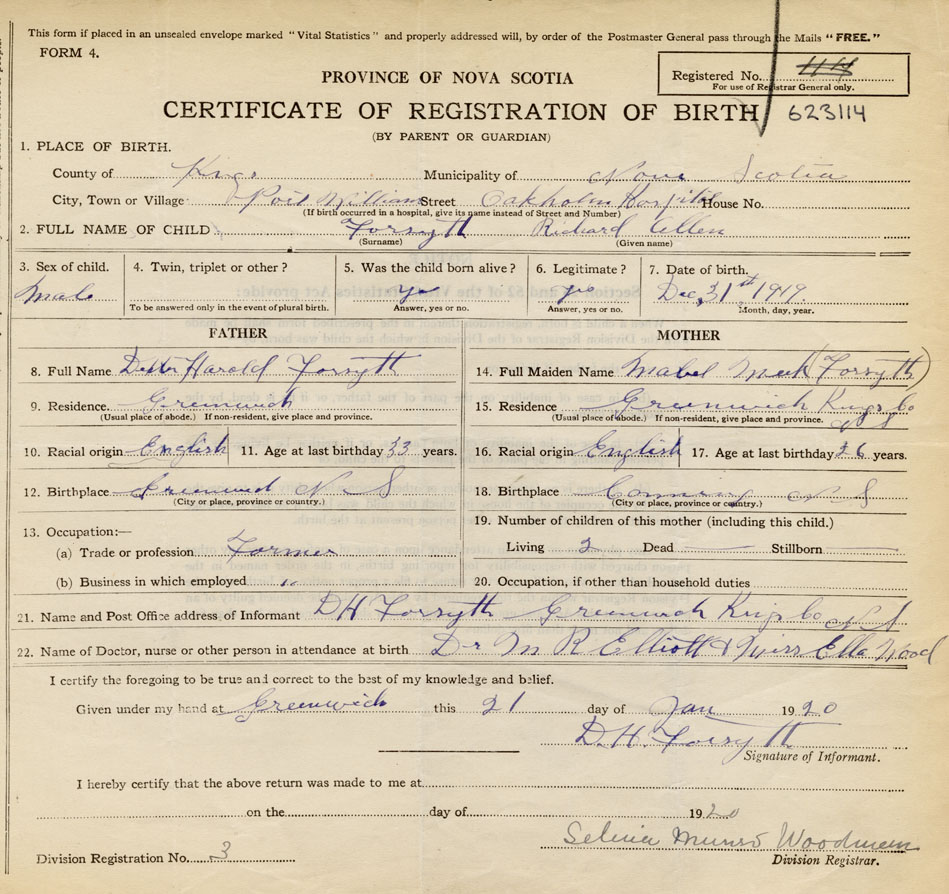 This form if placed in an unsealed envelope marked "Vital Statistics" and properly addressed will, by order of the Postmaster General pass through the Mails "FREE."
FORM 4.
PROVINCE OF NOVA SCOTIA
Registered No. 44
For use of Registrar General only.
CERTIFICATE OF REGISTRATION OF BIRTH 623114
(BY PARENT OR GUARDIAN)
1. PLACE OF BIRTH.
County of Kings Municipality of Nova Scotia
City, Town or Village Port William Street Oakholm Hospital House No.
(If birth occurred in a hospital, give its name instead of Street and Number)
2. FULL NAME OF CHILD Forsyth Richard Allen
(Surname) (Given name)
3. Sex of child. 4. Twin, triplet or other? 5. Was the child born alive? 6. Legitimate? 7. Date of birth.
Male yes yes Dec 31st 1919.
To be answered only in the event of plural birth. Answer, yes or no. Answer, yes or no. Month, day, year.
FATHER MOTHER
8. Full Name Harold Forsyth 14. Full Maiden Name Mabel (Forsyth)
9. Residence. Greenwich 15. Residence Greenwich Kings Co
(Usual place of abode.) If non-resident, give place and province. (Usual place of abode.) If non-resident, give place and province. N S
10. Racial origin English 11. Age at last birthday 33 years. 16. Racial origin English 17. Age at last birthday 36 years.
12. Birthplace Greenwich N S 18. Birthplace N S
(City or place, province or country.) (City or place, province or country.)
19. Number of children of this mother (including this child.)
13. Occupation:—
(a) Trade or profession Farmer Living 2 Dead — Stillborn —
(b) Business in which employed " 20. Occupation, if other than household duties
21. Name and Post Office address of Informant D H Forsyth Greenwich Kings Co N S
22. Name of Doctor, nurse or other person in attendance at birth Dr M R Elliott & Miss Ella Wood
I certify the foregoing to be true and correct to the best of my knowledge and belief.
Given under my hand at Greenwich this 21 day of Jan 1920
D. H. Forsyth
Signature of Informant.
I hereby certify that the above return was made to me at
on the day of 1920
Selina Munro Woodman
Division Registration No. 3 Division Registrar.